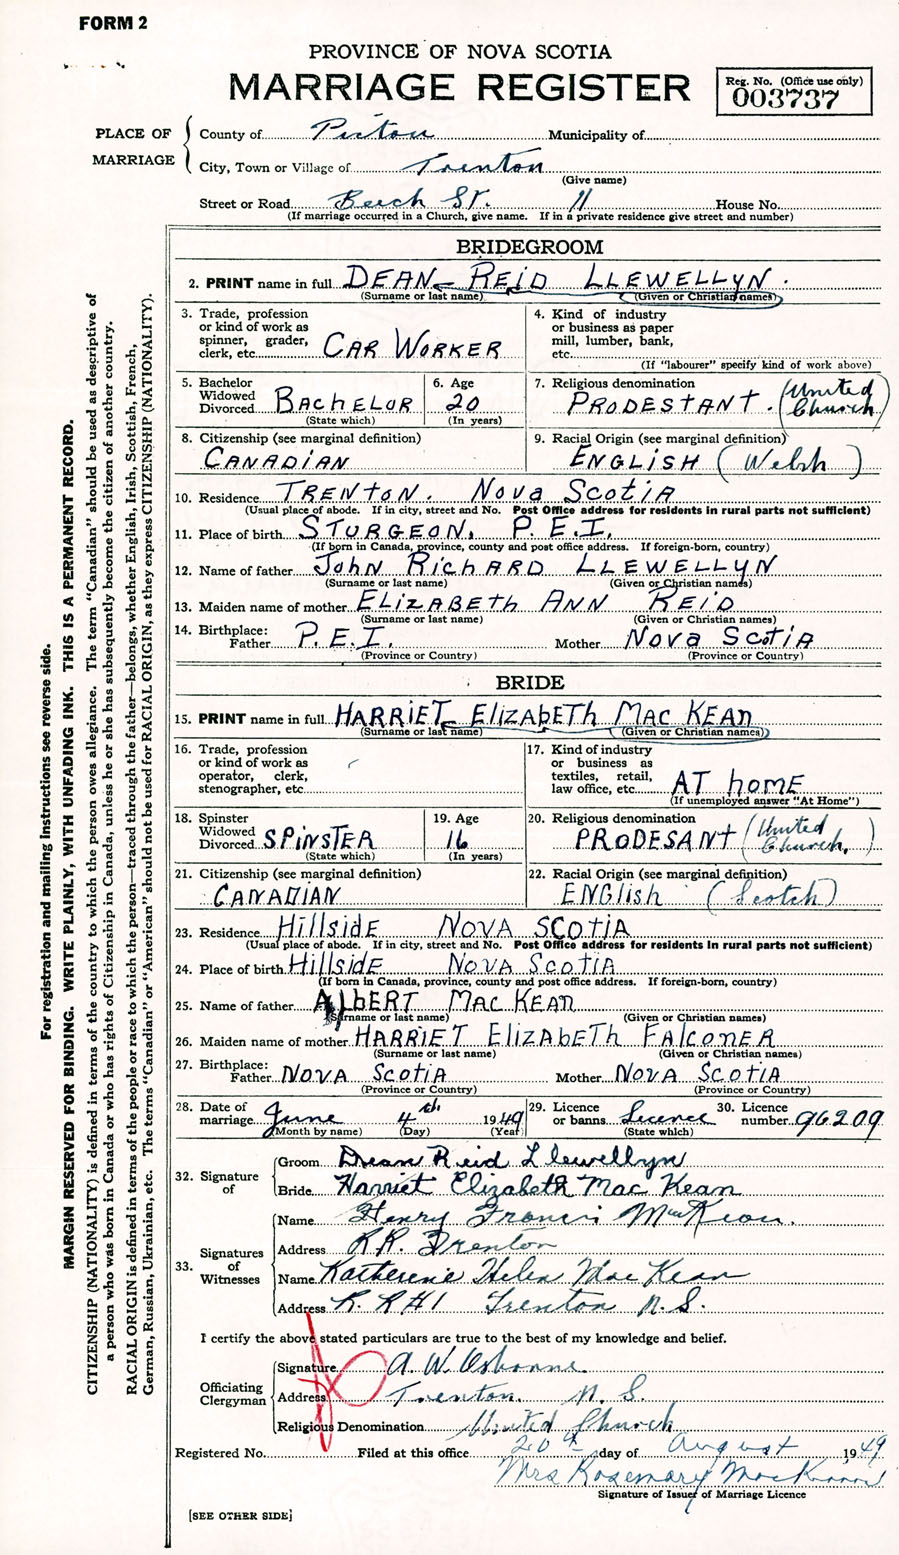 FORM 2
PROVINCE OF NOVA SCOTIA
MARRIAGE REGISTER
Reg. No. (Office use only)
003737
PLACE OF MARRIAGE
County of Pictou Municipality of
City, Town or Village of Trenton
(Give name)
Street or Road Beech St. 11 House No.
(If marriage occurred in a Church, give name. If in a private residence give street and number)
BRIDEGROOM
2. PRINT name in full DEAN REID LLEWELLYN.
(Surname or last name) (Given or Christian names)
3. Trade, profession or kind of work as spinner, grader, clerk, etc. CAR WORKER
4. Kind of industry or business as paper mill, lumber, bank, etc.
(If "labourer" specify kind of work above)
5. Bachelor Widowed Divorced BACHELOR
(State which)
6. Age 20
(In years)
7. Religious denomination PRODESTANT. (United Church)
8. Citizenship (see marginal definition) CANADIAN
9. Racial Origin (see marginal definition) ENGLISH (Welsh)
10. Residence TRENTON. NOVA SCOTIA
(Usual place of abode. If in city, street and No. Post Office address for residents in rural parts not sufficient)
11. Place of birth STURGEON, P.E.I.
(If born in Canada, province, county and post office address. If foreign-born, country)
12. Name of father JOHN RICHARD LLEWELLYN
(Surname or last name) (Given or Christian names)
13. Maiden name of mother ELIZABETH ANN REID
(Surname or last name) (Given or Christian names)
14. Birthplace: Father P.E.I. Mother NOVA SCOTIA
(Province or Country) (Province or Country)
BRIDE
15. PRINT name in full HARRIET ELIZABETH MAC KEAN
(Surname or last name) (Given or Christian names)
16. Trade, profession or kind of work as operator, clerk, stenographer, etc.
17. Kind of industry or business as textiles, retail, law office, etc. AT HOME
(If unemployed answer "At Home")
18. Spinster Widowed Divorced SPINSTER
(State which)
19. Age 16
(In years)
20. Religious denomination PRODESANT (United Church.)
21. Citizenship (see marginal definition) CANADIAN
22. Racial Origin (see marginal definition) ENGLISH (Scotch)
23. Residence HILLSIDE NOVA SCOTIA
(Usual place of abode. If in city, street and No. Post Office address for residents in rural parts not sufficient)
24. Place of birth HILLSIDE NOVA SCOTIA
(If born in Canada, province, county and post office address. If foreign-born, country)
25. Name of father ALBERT MAC KEAN
(Surname or last name) (Given or Christian names)
26. Maiden name of mother HARRIET ELIZABETH FALCONER
(Surname or last name) (Given or Christian names)
27. Birthplace: Father NOVA SCOTIA Mother NOVA SCOTIA
(Province or Country) (Province or Country)
28. Date of marriage June 4th 1949
(Month by name) (Day) (Year)
29. Licence or banns Licence
(State which)
30. Licence number 96209
32. Signature of
Groom Dean Reid Llewellyn
Bride Harriet Elizabeth Mac Kean
33. Signatures of Witnesses
Name Henry Francis MacKean.
Address R.R. Trenton
Name Katherine Helen Mac Kean
Address R. R#1 Trenton N.S.
I certify the above stated particulars are true to the best of my knowledge and belief.
Officiating Clergyman
Signature A. W. Osborne
Address Trenton. N. S.
Religious Denomination United Church
Registered No. Filed at this office 20th day of August 1949
Mrs Rosemary
Signature of Issuer of Marriage Licence
[SEE OTHER SIDE]
For registration and mailing instructions see reverse side.
MARGIN RESERVED FOR BINDING. WRITE PLAINLY, WITH UNFADING INK. THIS IS A PERMANENT RECORD.
CITIZENSHIP (NATIONALITY) is defined in terms of the country to which the person owes allegiance. The term "Canadian" should be used as descriptive of
a person who was born in Canada or who has rights of Citizenship in Canada, unless he or she has subsequently become the citizen of another country.
RACIAL ORIGIN is defined in terms of the people or race to which the person—traced through the father—belongs, whether English, Irish, Scottish, French,
German, Russian, Ukrainian, etc. The terms "Canadian" or "American" should not be used for RACIAL ORIGIN, as they express CITIZENSHIP (NATIONALITY).